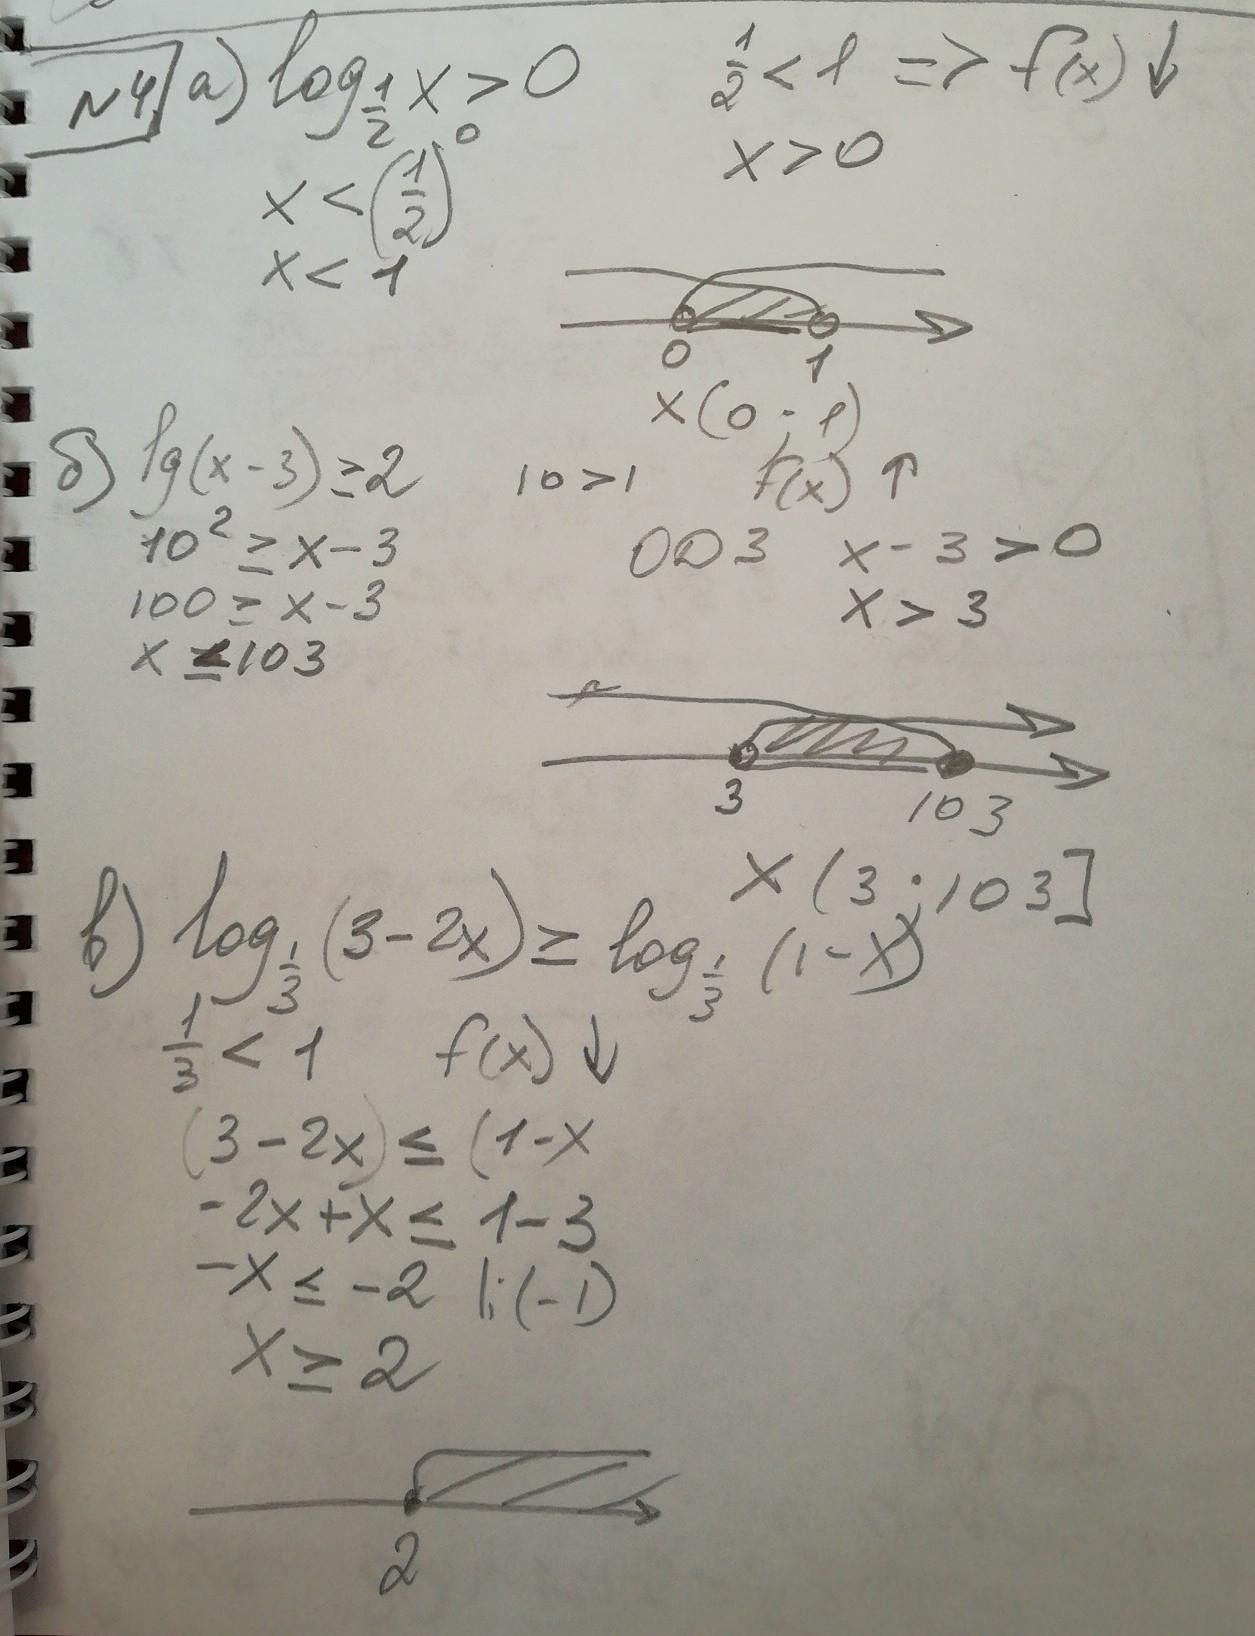 №4 а) log_{1/2} x > 0    1/2 < 1 => f(x) ↓
x < (1/2)^0    x > 0
x < 1
0 1
x (0 ; 1)
б) lg(x - 3) ≥ 2    10 > 1    f(x) ↑
10² ≥ x - 3    ОДЗ x - 3 > 0
100 ≥ x - 3    x > 3
x ≤ 103
3 103
x (3 ; 103]
в) log_{1/3} (3 - 2x) ≥ log_{1/3} (1 - x)
1/3 < 1    f(x) ↓
(3 - 2x) ≤ (1 - x
-2x + x ≤ 1 - 3
-x ≤ -2 |:(-1)
x ≥ 2
2